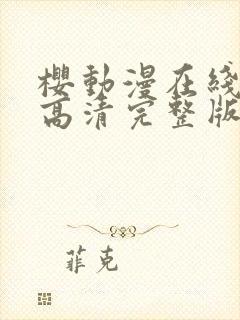 櫻動漫在綫
高清完整版
菲克